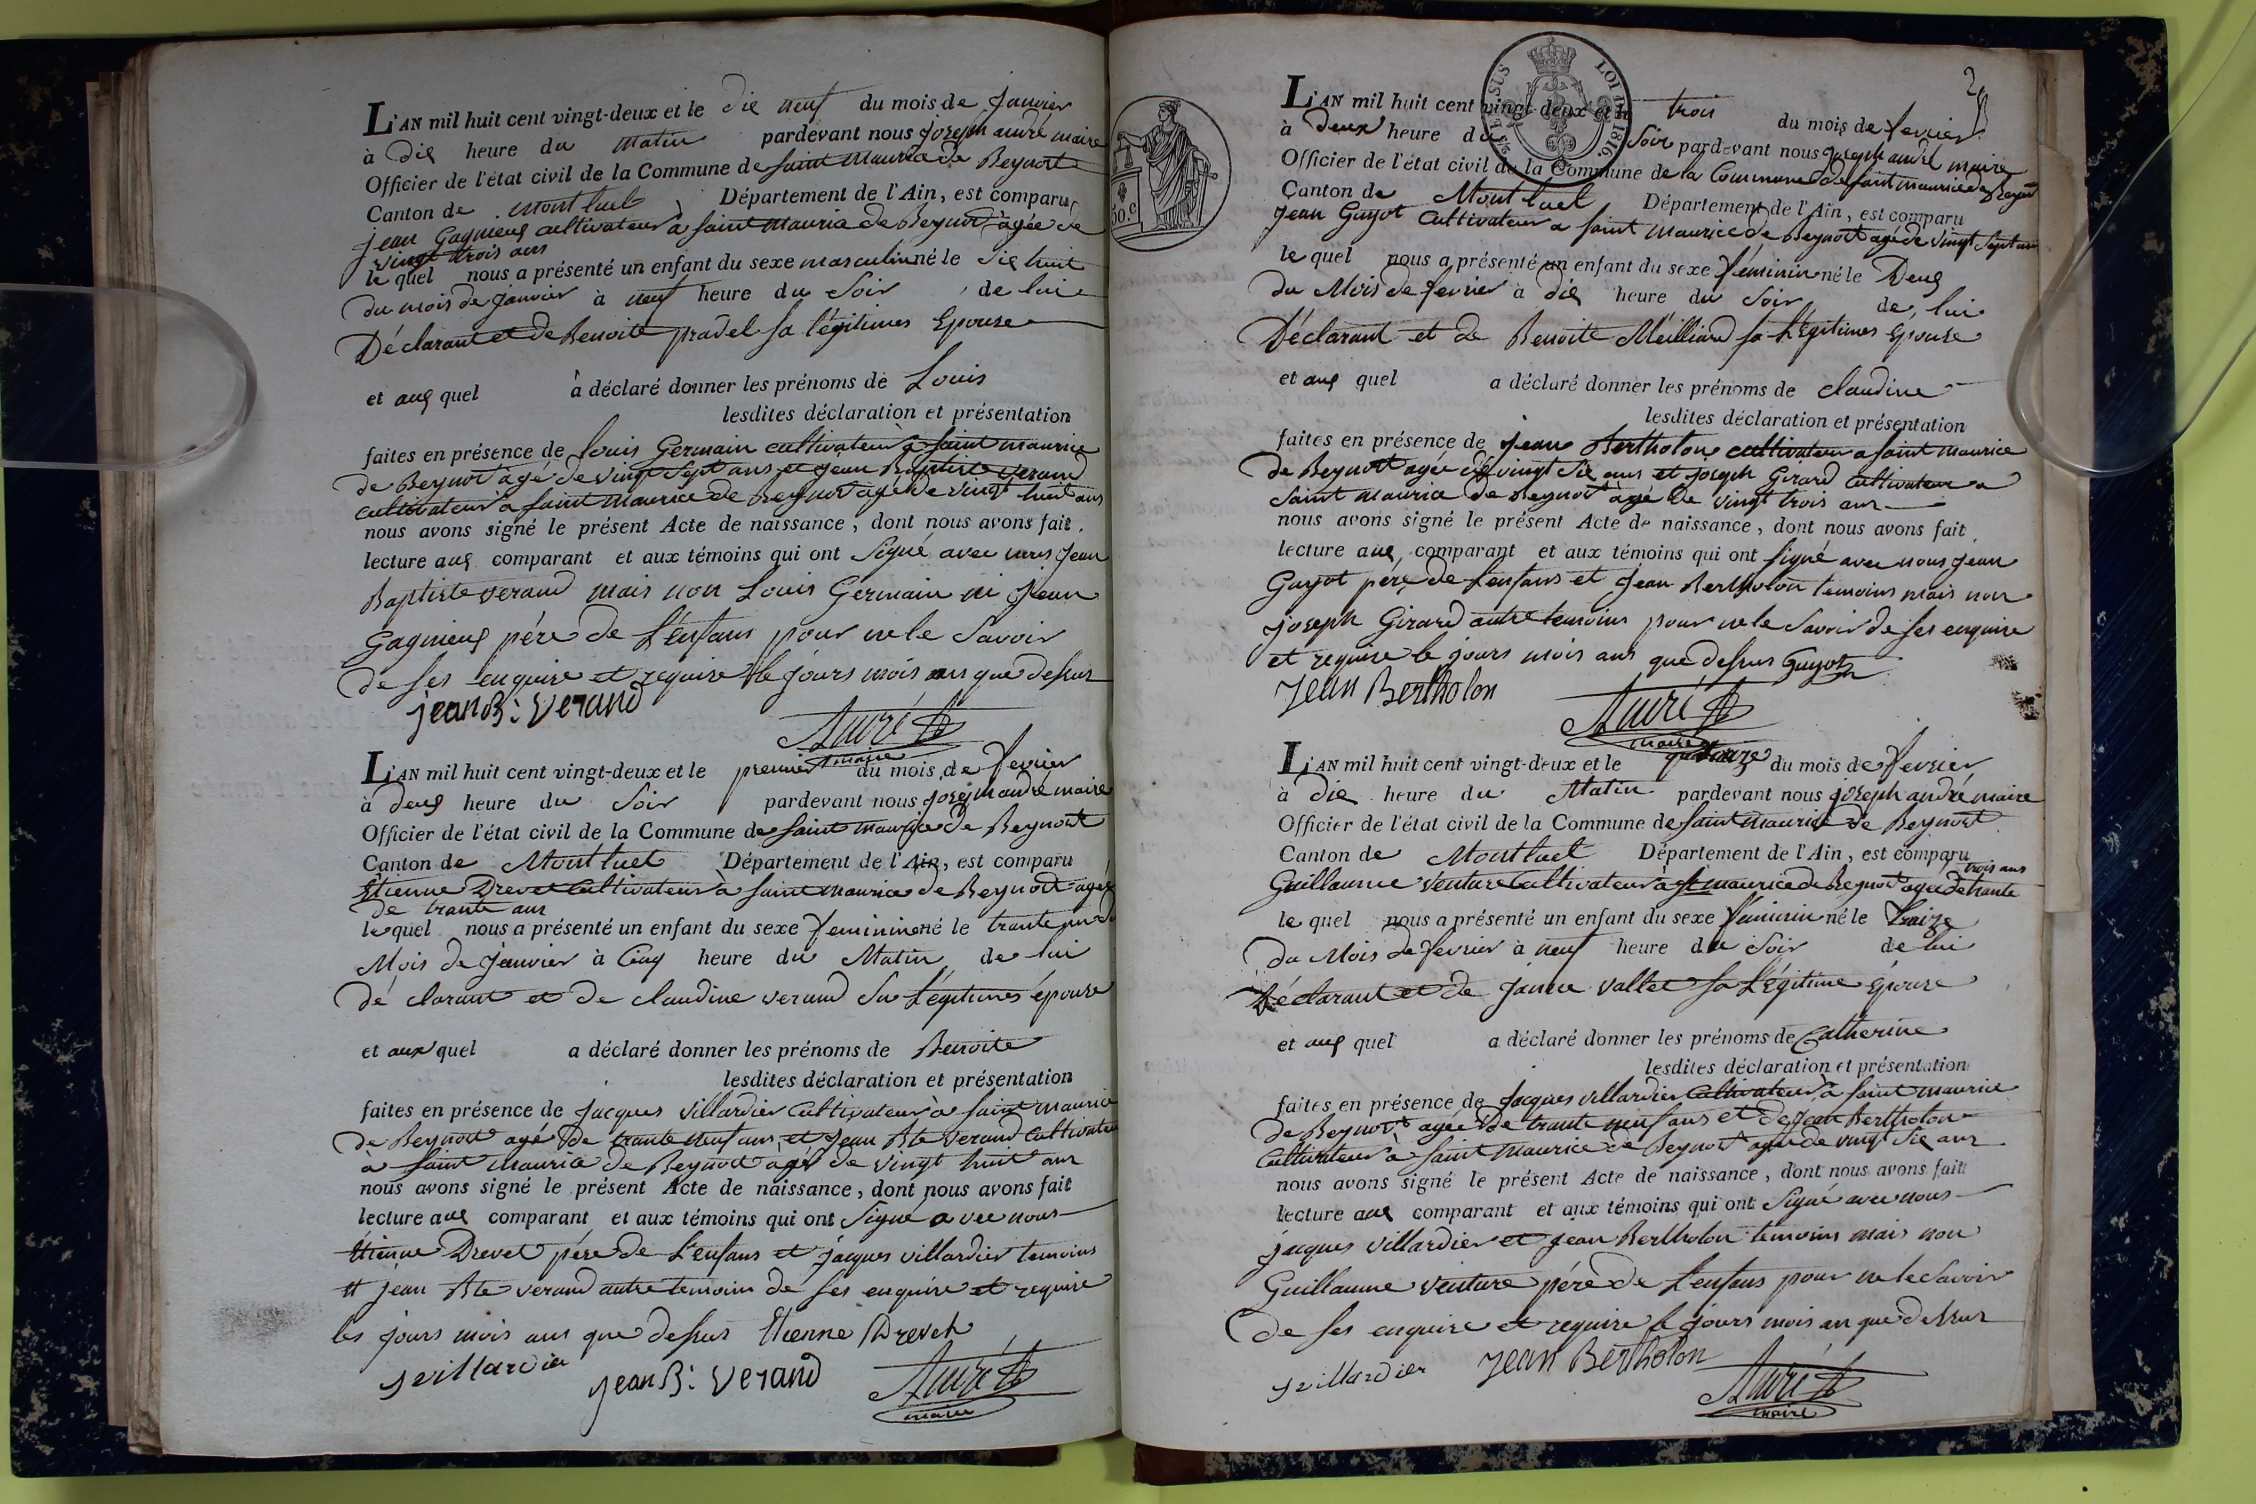 L'AN mil huit cent vingt-deux et le dix neuf du mois de janvier
à dix heure du matin pardevant nous joseph andré maire
Officier de l'état civil de la Commune de saint maurice de Beynost
Canton de montluel Département de l'Ain, est comparu
jean Gagnieux cultivateur a saint maurice de Beynost agée de
vingt trois ans
le quel nous a présenté un enfant du sexe masculin né le dix huit
du mois de janvier à neuf heure du soir de lui
Déclarant et de Benoite pradel sa légitimes Epouse
et aux quel à déclaré donner les prénoms de Louis
lesdites déclaration et présentation
faites en présence de louis Germain cultivateur a saint maurice
de Beynost agé de vingt sept ans et jean Baptiste verand
cultivateur a saint maurice de Beynost agé de vingt huit ans
nous avons signé le présent Acte de naissance, dont nous avons fait
lecture aux comparant et aux témoins qui ont signé avec nous jean
Baptiste verand mais non Louis Germain ni jean
Gagnieux pére de l'enfans pour ne le savoir
de ses enquire et require le jours mois ans que dessus
jean B: verand
André
maire
L'AN mil huit cent vingt-deux et le premier du mois de fevrier
à deux heure du soir pardevant nous joseph andré maire
Officier de l'état civil de la Commune de saint maurice de Beynost
Canton de Montluel Département de l'Ain, est comparu
Etienne Drevet Cultivateur à saint maurice de Beynost agée
de trante ans
le quel nous a présenté un enfant du sexe feminin né le trante un du
Mois de janvier à Cinq heure du Matin de lui
dé clarant et de claudine verand sa légitimes épouse
et aux quel a déclaré donner les prénoms de Benoite
lesdites déclaration et présentation
faites en présence de jacques villardier Cultivateur à saint maurice
de Beynost agé de trante neuf ans et jean Bte verand Cultivateur
à saint maurice de Beynost agé de vingt huit ans
nous avons signé le présent Acte de naissance, dont nous avons fait
lecture aux comparant et aux témoins qui ont signé avec nous
Etienne Drevet pére de l'enfans et jacques villardier temoins
et jean Bte verand autre temoins de ses enquire et require
les jours mois ans que dessus Etienne Drevet
jvillardier jean B: verand André
maire
SUS
LOI DE 1816
50.c
2
L'AN mil huit cent vingt-deux et le trois du mois de fevrier
à deux heure du soir pardevant nous joseph andré maire
Officier de l'état civil de la Commune de la Commune de saint maurice de Beynost
Canton de Montluel Département de l'Ain, est comparu
jean Guyot Cultivateur a saint maurice de Beynost agé de vingt sept ans
le quel nous a présenté un enfant du sexe féminin né le Deux
du Mois de fevrier à dix heure du soir de lui
Déclarant et de Benoite Meilliard sa légitimes Epouse
et aux quel a déclaré donner les prénoms de claudine
lesdites déclaration et présentation
faites en présence de jean Bertholon cultivateur a saint maurice
de Beynost agée de vingt six ans et joseph Girard cultivateur a
saint maurice de Beynost agé de vingt trois ans
nous avons signé le présent Acte de naissance, dont nous avons fait
lecture aux comparant et aux témoins qui ont signé avec nous jean
Guyot pére de l'enfans et jean Bertholon temoins mais non
joseph Girard autre temoins pour ne le savoir de ses enquire
et require le jours mois ans que dessus Guyot
jean Bertholon
André
maire
L'AN mil huit cent vingt-deux et le quatorze du mois de fevrier
à dix heure du Matin pardevant nous joseph andré maire
Officier de l'état civil de la Commune de saint maurice de Beynost
Canton de Montluel Département de l'Ain, est comparu
Guillaume venture Cultivateur à st maurice de Beynost agée de trante trois ans
le quel nous a présenté un enfant du sexe féminin né le traize
du Mois de fevrier à neuf heure du soir de lui
Déclarant et de janne vallet sa Légitime Epouse
et aux quel a déclaré donner les prénoms de Catherine
lesdites déclaration et présentation
faites en présence de jacques villardier Cultivateur à saint maurice
de Beynost agée de trante neuf ans et de jean Bertholon
Cultivateur à saint maurice de Beynost agé de vingt six ans
nous avons signé le présent Acte de naissance, dont nous avons fait
lecture aux comparant et aux témoins qui ont signé avec nous
jacques villardier et jean Bertholon temoins mais non
Guillaume venture pére de l'enfans pour ne le savoir
de ses enquire et require le jours mois an que dessus
jvillardier jean Bertholon André
maire